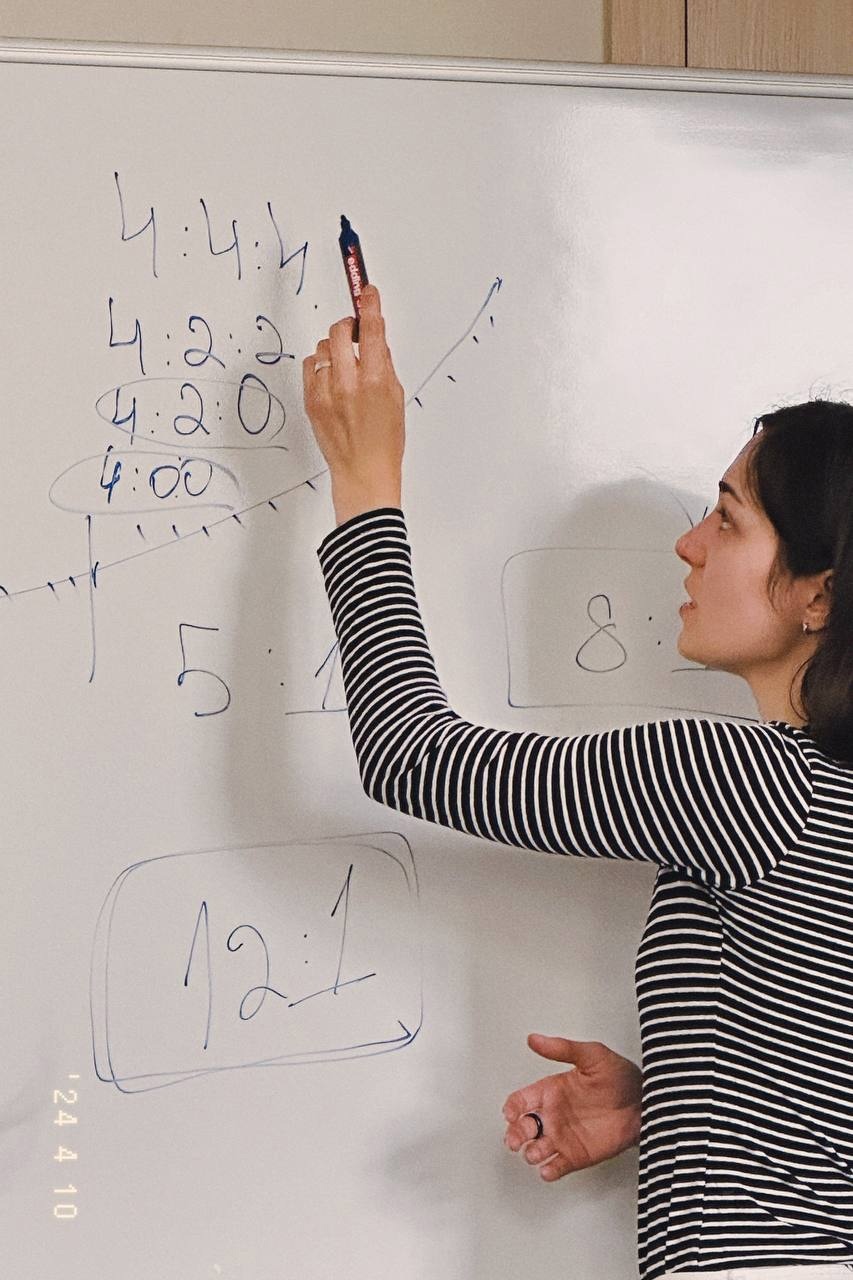 4:4:4
edding
4:2:2
4:2:0
4:00
5:1
8:
12:1
'24 4 10